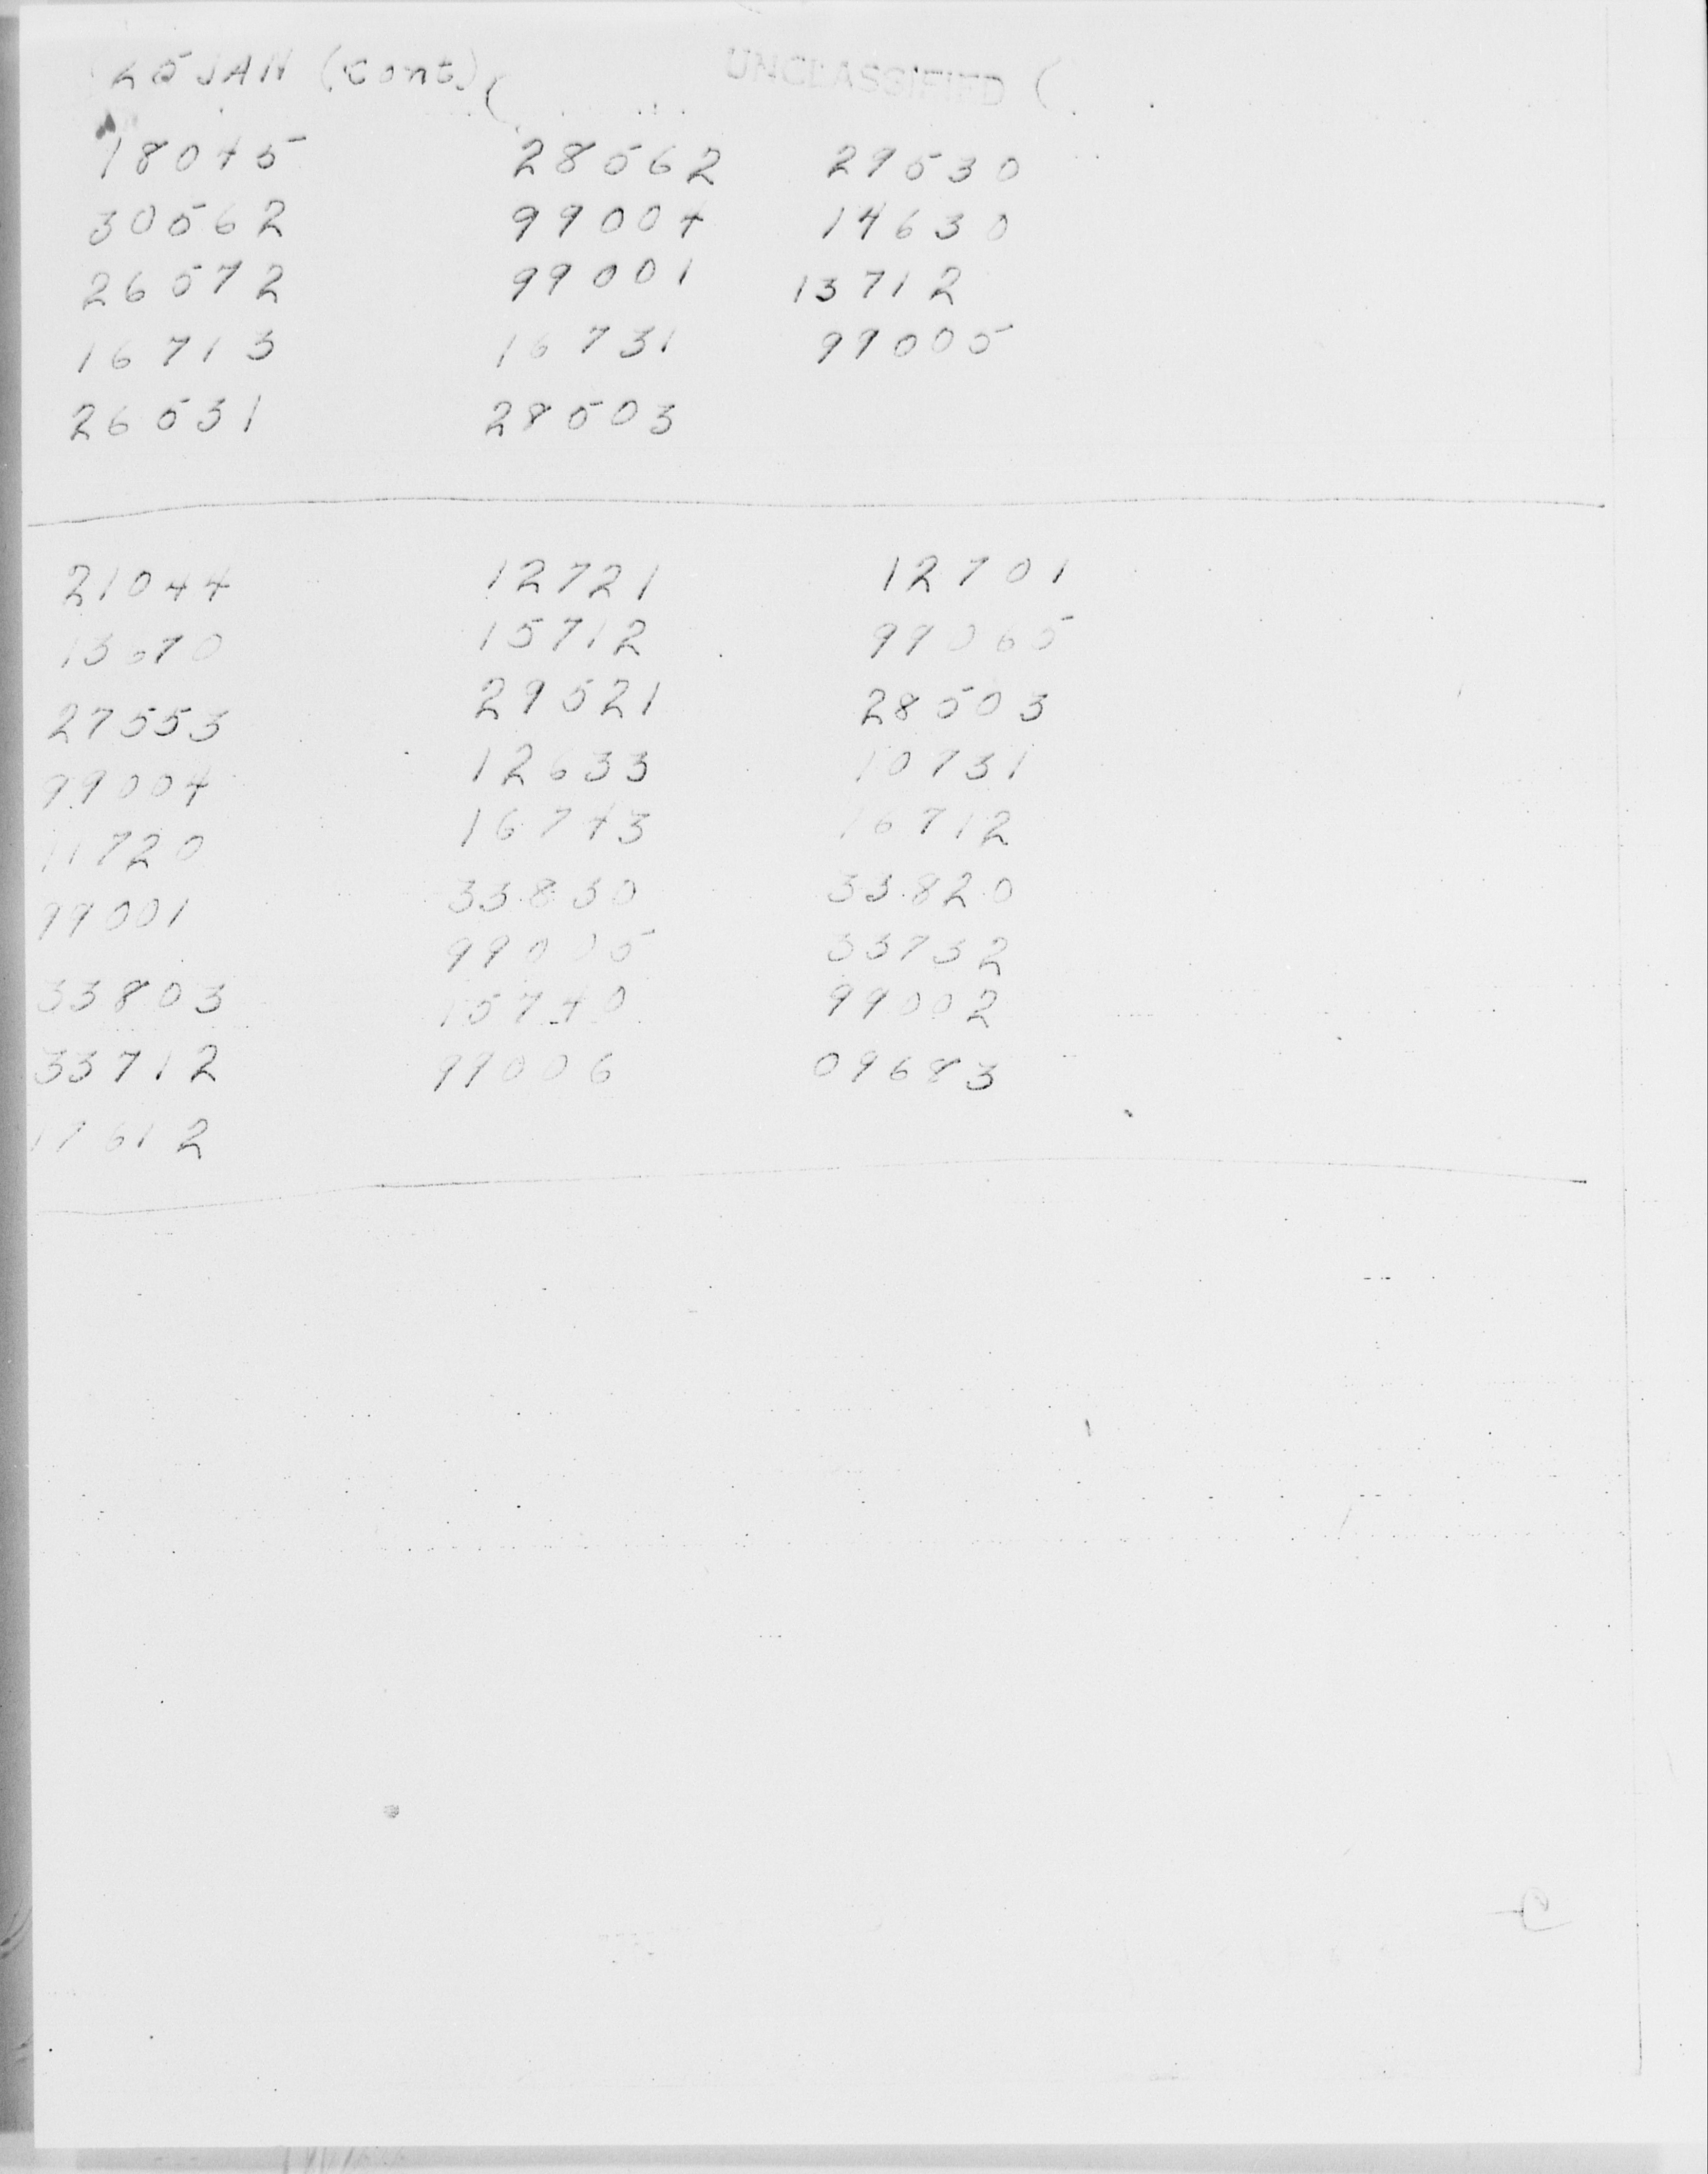 25 JAN (cont) UNCLASSIFIED
18045 28562 29530
30562 99004 14630
26572 99001 13712
16713 16731 99005
26531 28503
21044 12721 12701
13670 15712 99065
27553 29521 28503
99004 12633 10731
11720 16743 16712
99001 33830 33820
33803 99005 33732
33712 15740 99002
17612 99006 09683